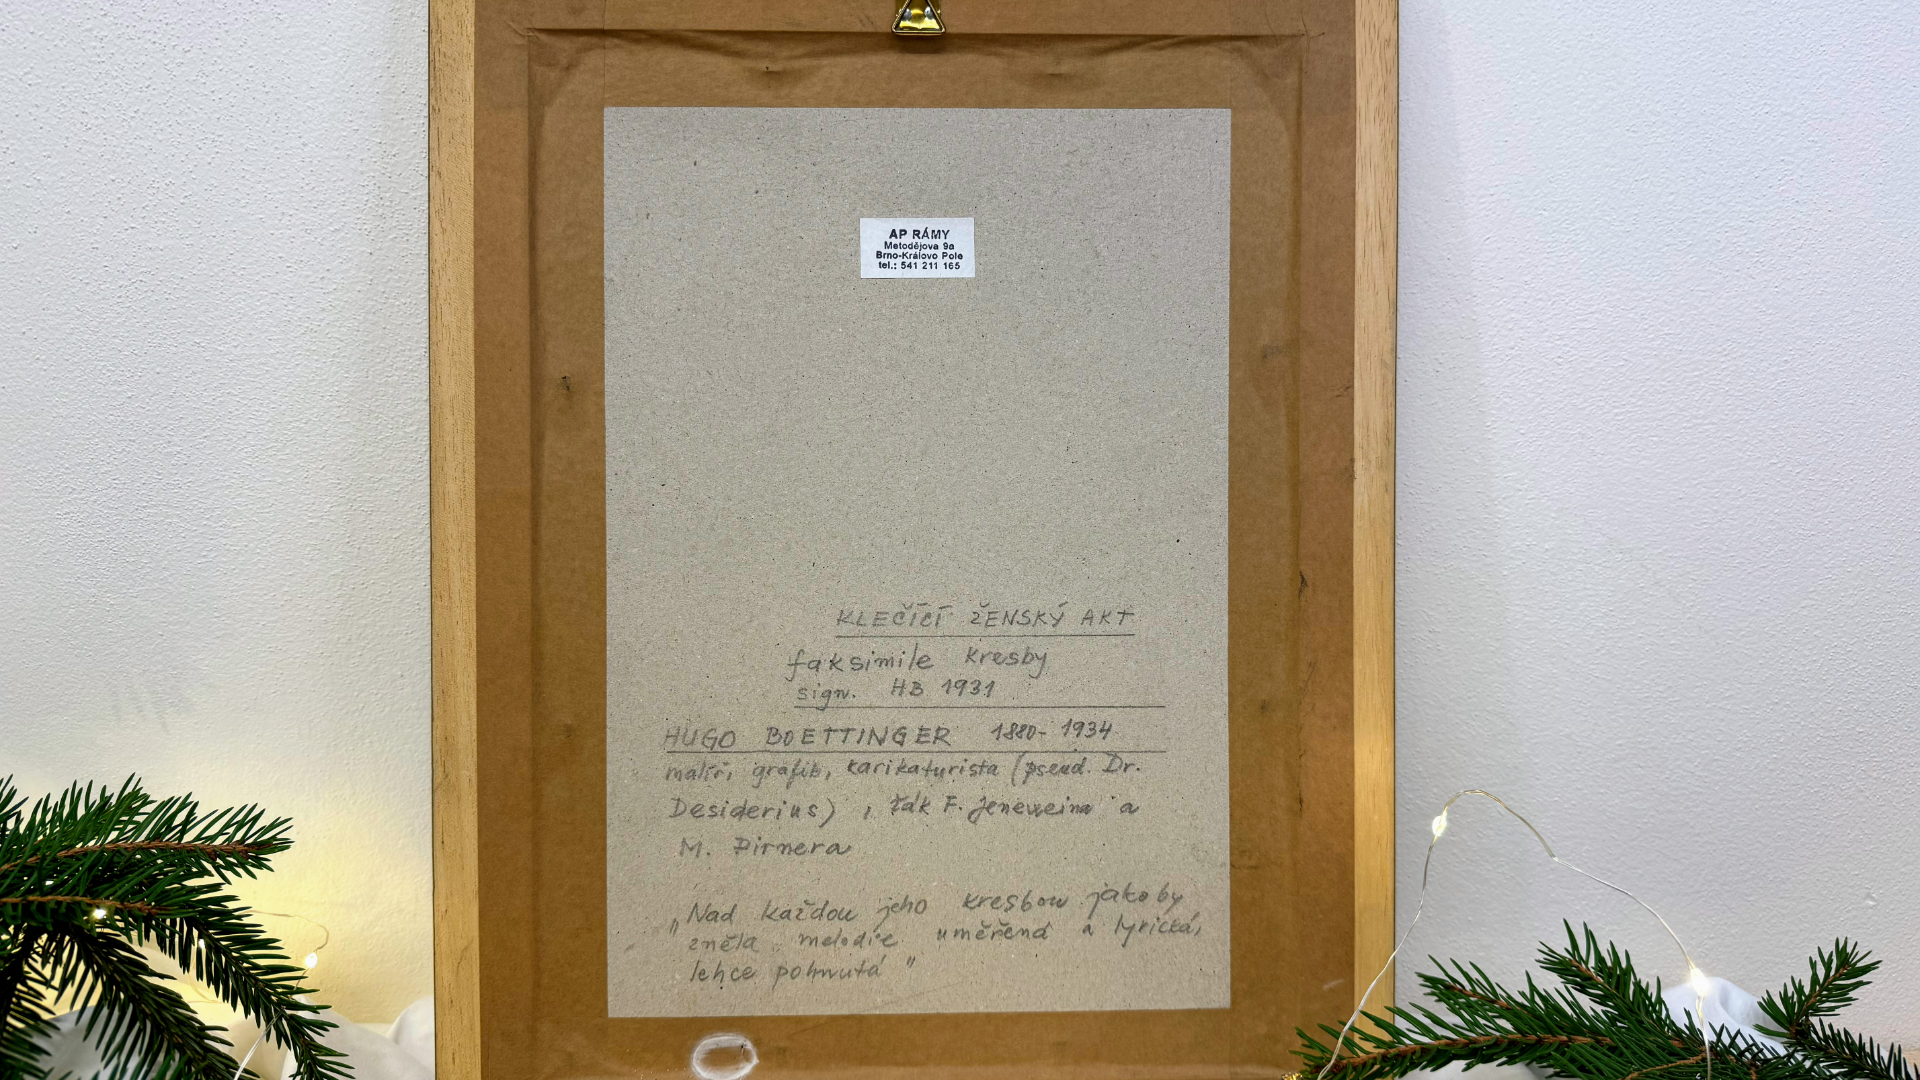 AP RÁMY
Metodějova 9a
Brno-Královo Pole
tel.: 541 211 165
KLEČÍCÍ ŽENSKÝ AKT
faksimile kresby
sign. HB 1931
HUGO BOETTINGER 1880-1934
malíř, grafik, karikaturista (pseud. Dr.
Desiderius), žák F. Jeneweina a
M. Pirnera
„Nad každou jeho kresbou jakoby
zněla melodie uměřená a lyrická,
lehce pohnutá"